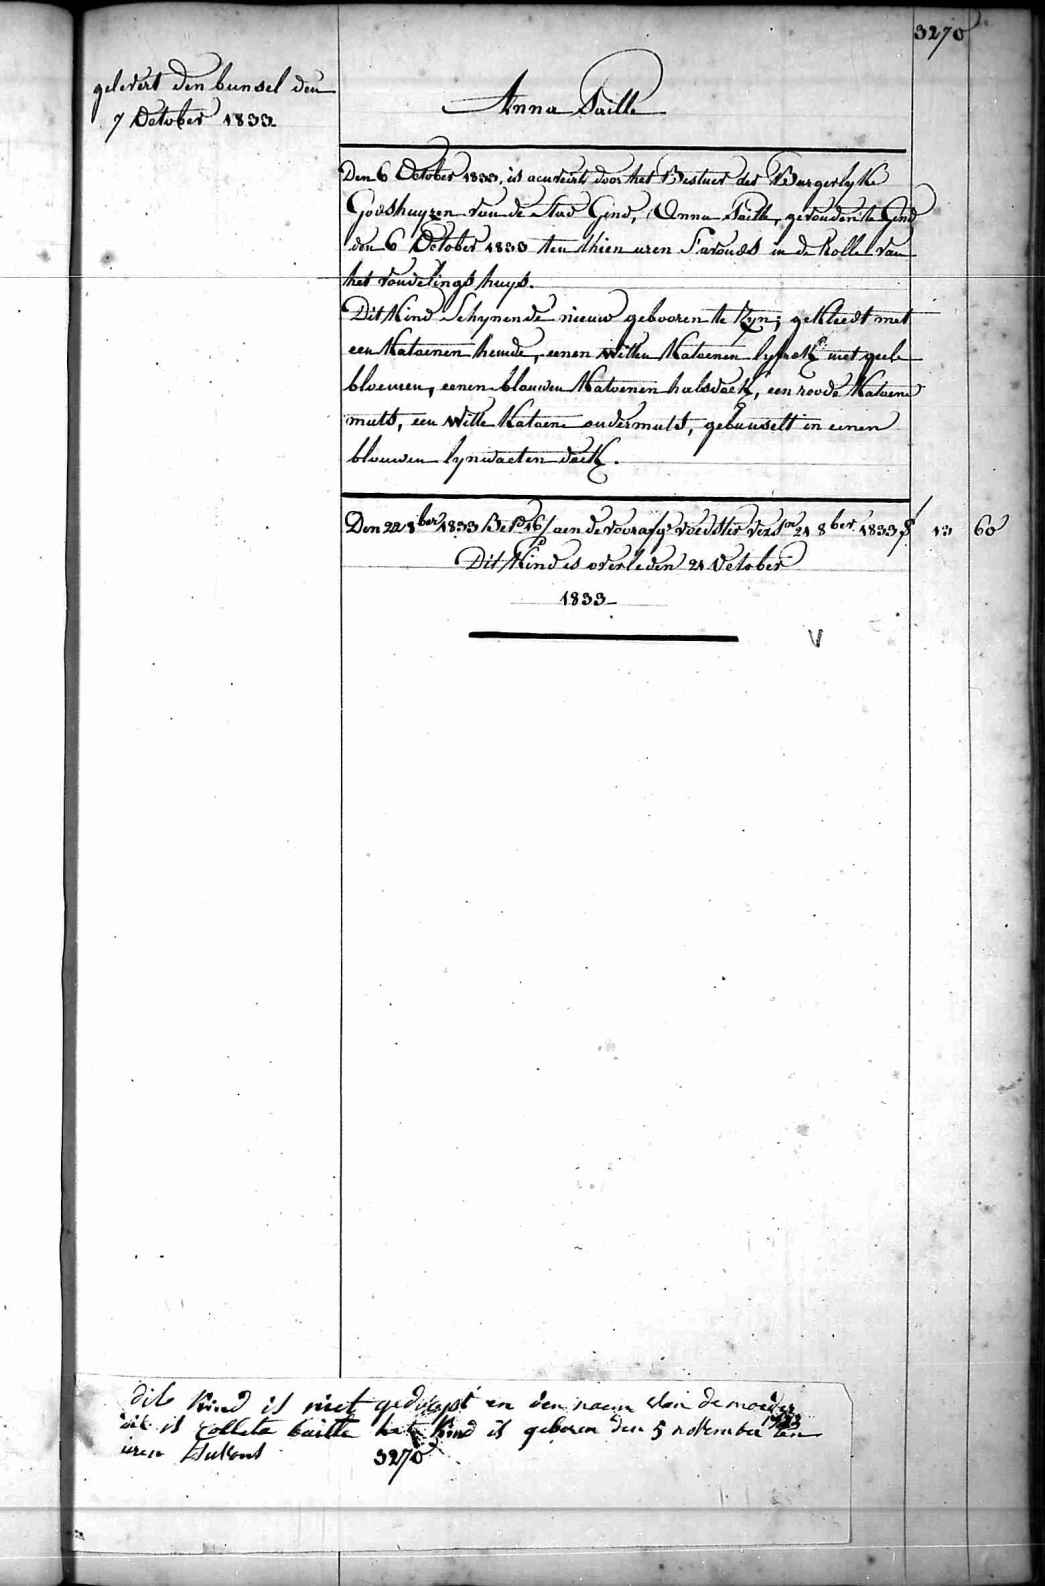 3270
gelevert den bunsel den
7 October 1833
Anna Saille
Den 6 October 1833, is acuveirt door het Bestuer der Burgerlyke
Godshuyzen van de Stad Gend, Anna Saille, gevonden te Gend
den 6 October 1833 ten thien uren s'avonds in de Rolle van
het vondelings huys.
Dit Kind Schynende nieuw gebooren te zyn; gekleedt met
een Katoenen hemde, eenen witten Katoenen met geele
bloemen, eenen blauwen Katoenen halsdoek, een roode Katoene
muts, een witte Katoene ondermuts, gebunselt in eenen
blauwen lynwaeten doek.
Den 22 8ber 1833 Bet 16 aen de voorafg voedster 21 8ber 1833 13 60
Dit Kind is overleden 21 October
1833
V
dit kind is niet gedoopt en den naem van de moeder
dit is Colleta Saille het kind is geboren den 5 november 1833 ten
uren s'avons
3270